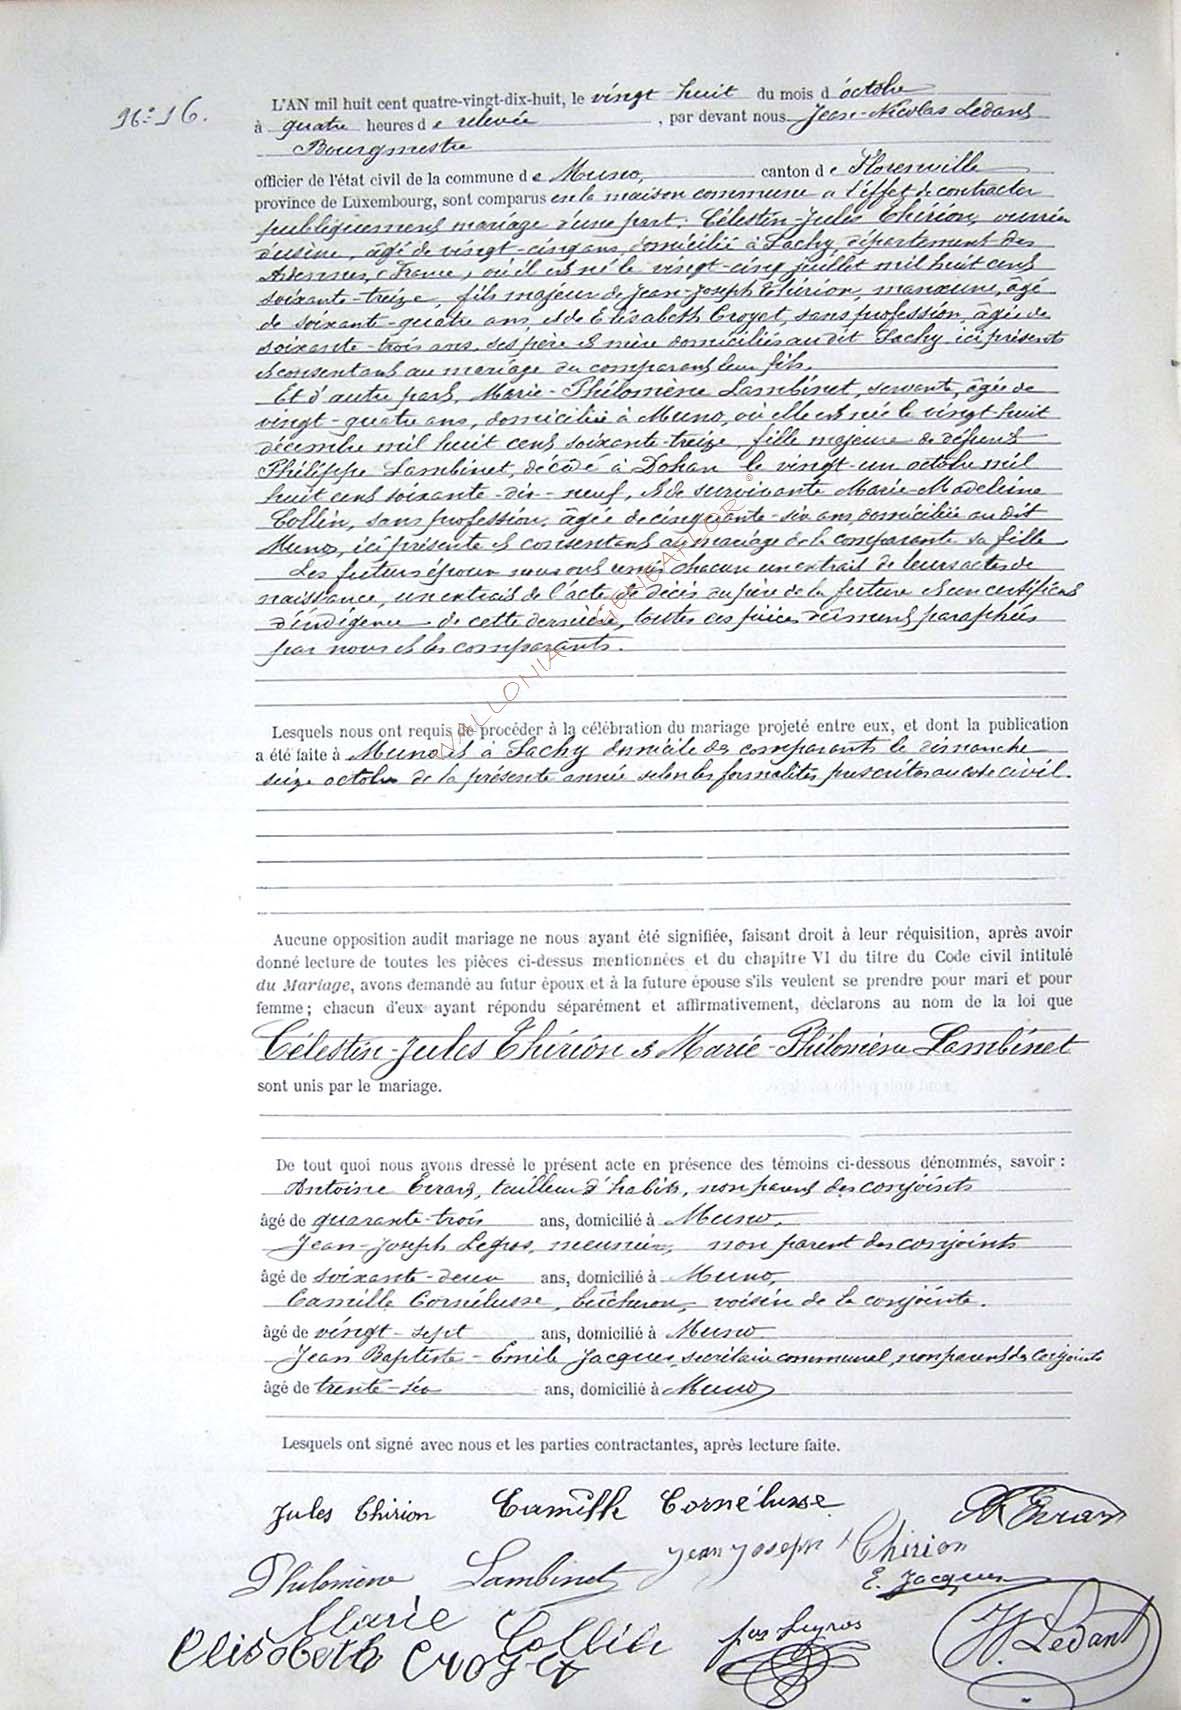 N° 16.
L'AN mil huit cent quatre-vingt-dix-huit, le vingt-huit du mois d'octobre
à quatre heures de relevée, par devant nous Jean-Nicolas Ledant
Bourgmestre
officier de l'état civil de la commune de Muno, canton de Florenville
province de Luxembourg, sont comparus en la maison commune à l'effet de contracter
publiquement mariage d'une part. Célestin-Jules Thirion, ouvrier
d'usine, âgé de vingt-cinq ans, domicilié à Sachy, département des
Ardennes, (France), où il est né le vingt-cinq juillet mil huit cent
soixante-treize, fils majeur de Jean-Joseph Thirion, manœuvre, âgé
de soixante-quatre ans, et de Elisabeth Croyet, sans profession, âgée de
soixante-trois ans, ses père et mère domiciliés au dit Sachy, ici présents
et consentant au mariage du comparant leur fils.
Et d'autre part, Marie-Philomène Lambinet, servante, âgée de
vingt-quatre ans, domiciliée à Muno, où elle est née le vingt huit
décembre mil huit cent soixante-treize, fille majeure de défunt
Philippe Lambinet, décédé à Dohan le vingt-un octobre mil
huit cent soixante-dix-neuf, et de survivante Marie-Madeleine
Collin, sans profession, âgée de cinquante-six ans, domiciliée au dit
Muno, ici présente et consentant au mariage de la comparante sa fille
Les futurs époux nous ont remis chacun un extrait de leurs actes de
naissance, un extrait de l'acte de décès du père de la future et un certificat
d'indigence de cette dernière, toutes ces pièces dûment paraphées
par nous et les comparants.
WALLONIA GENEAFLOR ©
Lesquels nous ont requis de procéder à la célébration du mariage projeté entre eux, et dont la publication
a été faite à Muno et à Sachy domicile des comparants le dimanche
seize octobre de la présente année selon les formalités prescrites au code civil.
Aucune opposition audit mariage ne nous ayant été signifiée, faisant droit à leur réquisition, après avoir
donné lecture de toutes les pièces ci-dessus mentionnées et du chapitre VI du titre du Code civil intitulé
du Mariage, avons demandé au futur époux et à la future épouse s'ils veulent se prendre pour mari et pour
femme; chacun d'eux ayant répondu séparément et affirmativement, déclarons au nom de la loi que
Célestin-Jules Thirion et Marie-Philomène Lambinet
sont unis par le mariage.
De tout quoi nous avons dressé le présent acte en présence des témoins ci-dessous dénommés, savoir :
Antoine Evrard, tailleur d'habits, non parent des conjoints
âgé de quarante-trois ans, domicilié à Muno,
Jean-Joseph Legros, meunier, non parent des conjoints
âgé de soixante-deux ans, domicilié à Muno,
Camille Cornélusse, bûcheron, voisin de la conjointe.
âgé de vingt-sept ans, domicilié à Muno
Jean Baptiste-Emile Jacques, secrétaire communal, non parent des conjoints
âgé de trente-six ans, domicilié à Muno
Lesquels ont signé avec nous et les parties contractantes, après lecture faite.
Jules Thirion Camille Cornélusse A Evrard
Philomène Lambinet Jean Joseph Thirion
E. Jacques
Marie Collin jos Legros JN. Ledant
Elisabeth Croyet